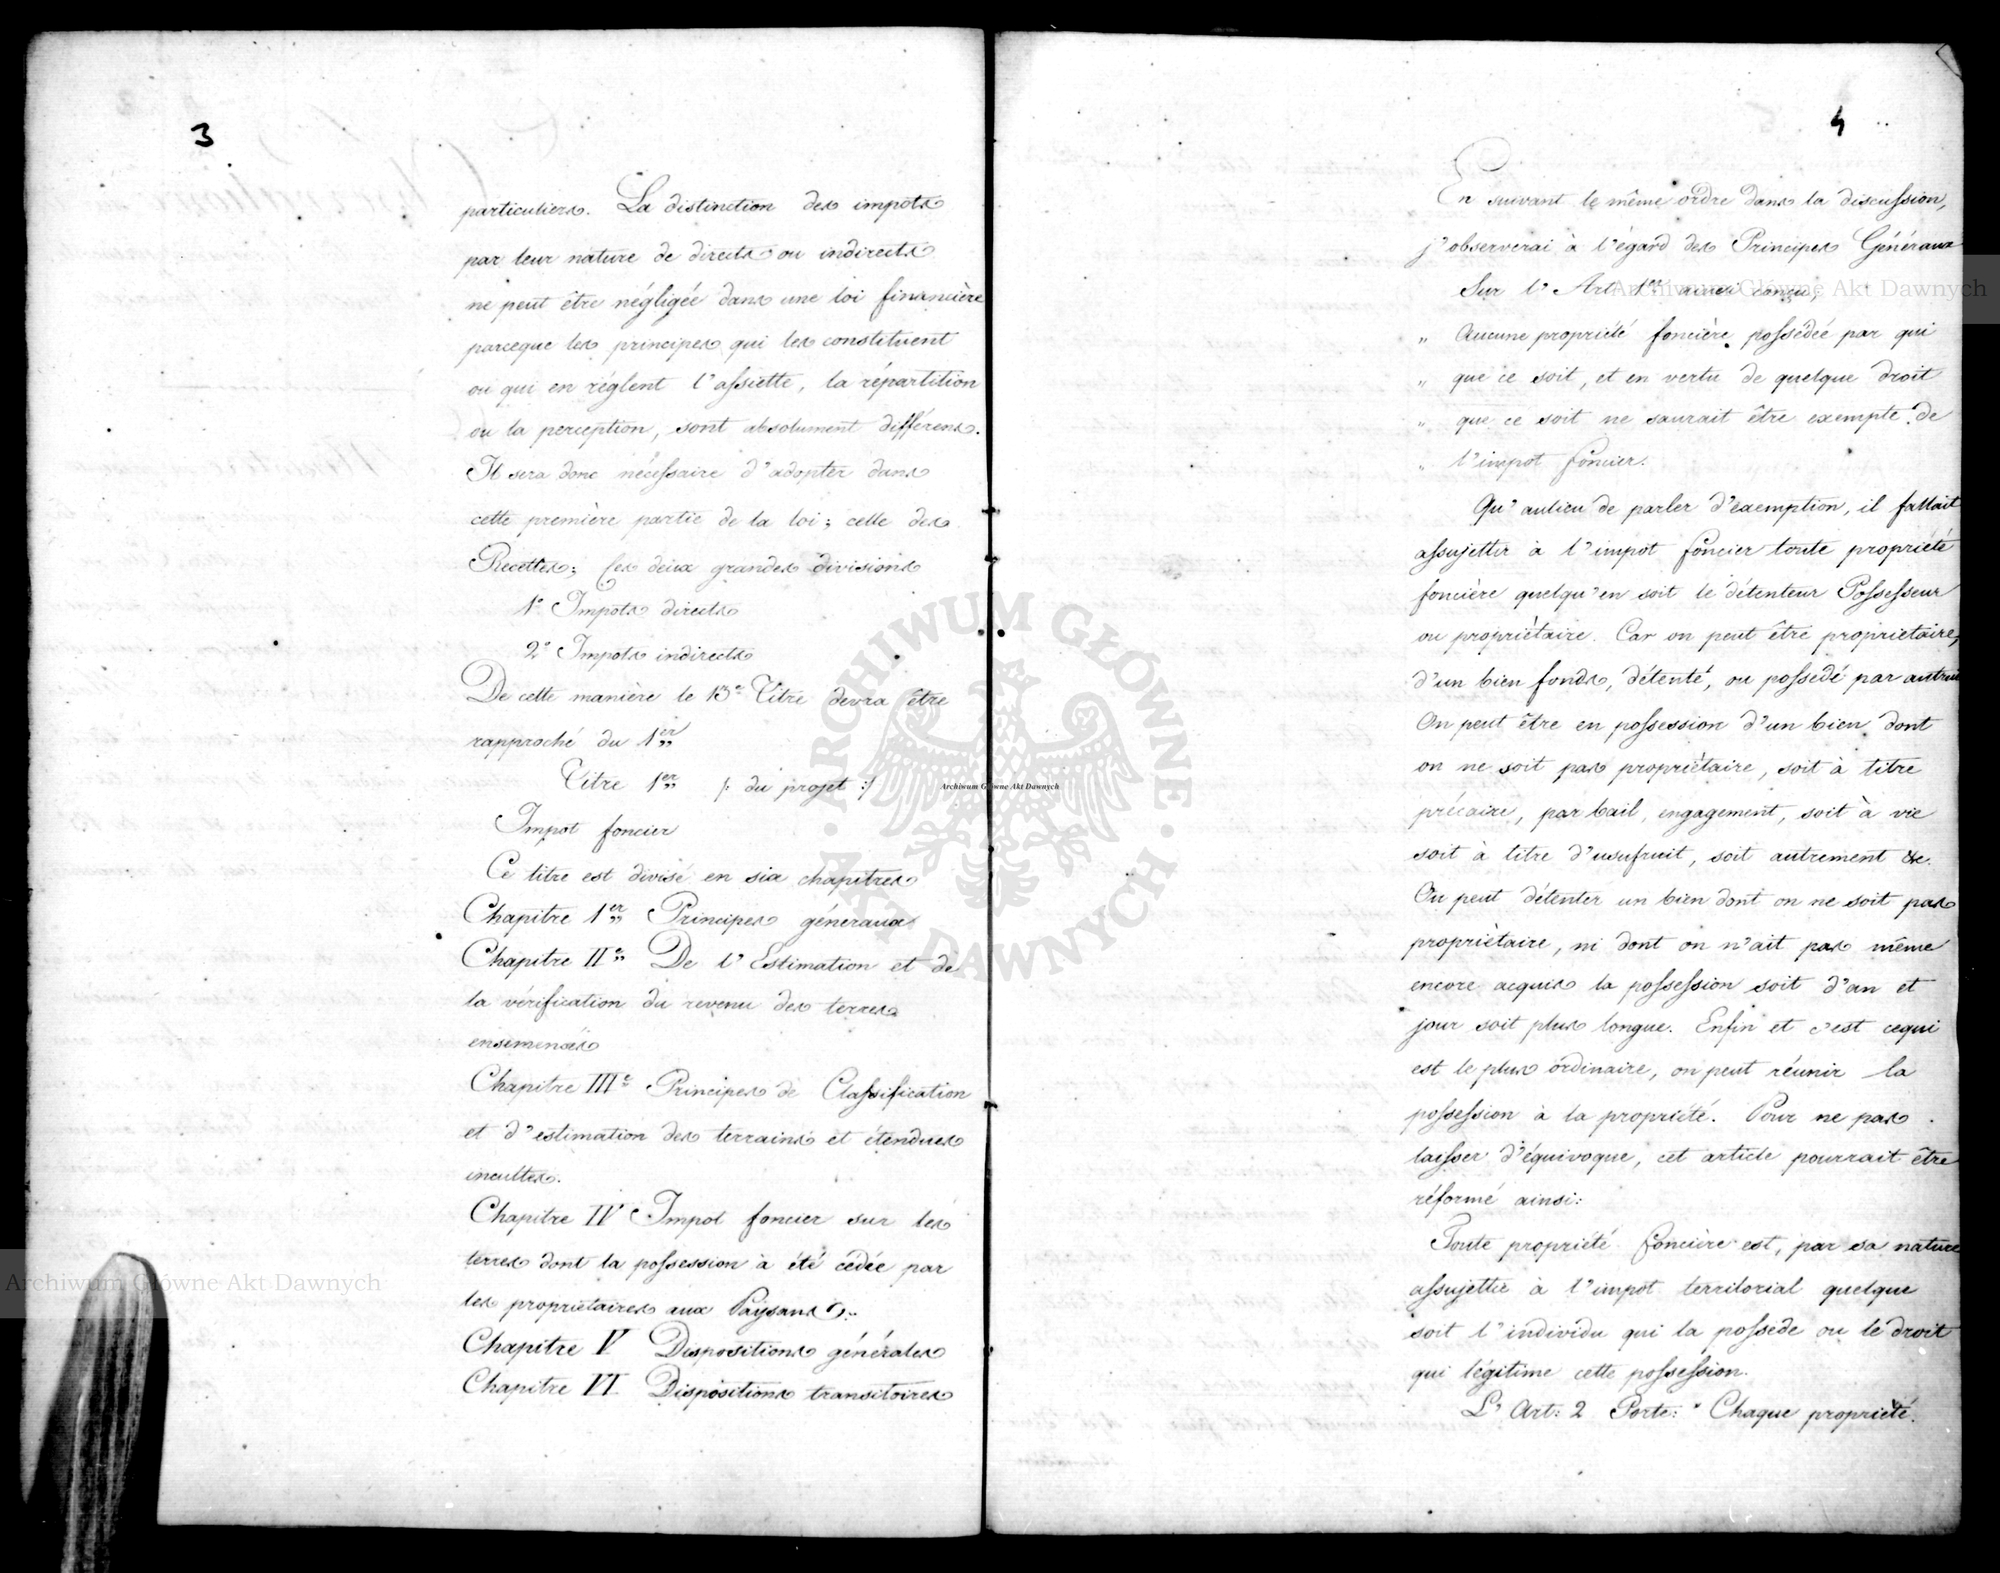 3
particuliers. La distinction des impots
par leur nature de directs ou indirects
ne peut être négligée dans une loi financière
parceque les principes qui les constituent
ou qui en réglent l'assiette, la répartition
ou la perception, sont absolument différens.
Il sera donc nécessaire d'adopter dans
cette première partie de la loi; celle des
Recettes; ces deux grandes divisions
1° Impots directs
2° Impots indirects
De cette manière le 13e Titre devra être
rapproché du 1er
Titre 1er /: du projet :/
Impot foncier
Ce titre est divisé en six chapitres
Chapitre 1er Principes géneraux
Chapitre IIe De l'Estimation et de
la vérification du revenu des terres
ensemensés
Chapitre IIIe Principes de Classification
et d'estimation des terrains et étendues
incultes.
Chapitre IV Impot foncier sur les
terres dont la possession à été cédée par
les propriétaires aux Paysans.
Chapitre V Dispositions générales
Chapitre VI Dispositions transitoires
4
En suivant le même ordre dans la discussion,
j'observerai à l'égard des Principes Généraux
Sur l'Art 1er ainsi conçu,
" Aucune propriété foncière possédée par qui
" que ce soit, et en vertu de quelque droit
" que ce soit ne saurait être exempte de
" l'impot foncier.
Qu'aulieu de parler d'exemption, il fallait
assujettir à l'impot foncier toute propriété
foncière quelqu'en soit le détenteur Possesseur
ou propriètaire. Car on peut être propriétaire,
d'un bien fonds, détenté, ou possédé par autrui
On peut être en possession d'un bien dont
on ne soit pas propriètaire, soit à titre
précaire, par bail, engagement, soit à vie
soit à titre d'usufruit, soit autrement &c.
On peut détenter un bien dont on ne soit pas
propriètaire, ni dont on n'ait pas même
encore acquis la possession soit d'an et
jour soit plus longue. Enfin et c'est cequi
est le plus ordinaire, on peut réunir la
possession à la propriété. Pour ne pas
laisser d'équivoque, cet article pourrait être
réformé ainsi:
Toute propriété foncière est, par sa nature
assujettie à l'impot territorial quelque
soit l'individu qui la possède ou le droit
qui légitime cette possession.
L'Art: 2 Porte: " Chaque propriété
Archiwum Główne Akt Dawnych
Archiwum Główne Akt Dawnych
Archiwum Główne Akt Dawnych
ARCHIWUM GŁÓWNE · AKT DAWNYCH ·